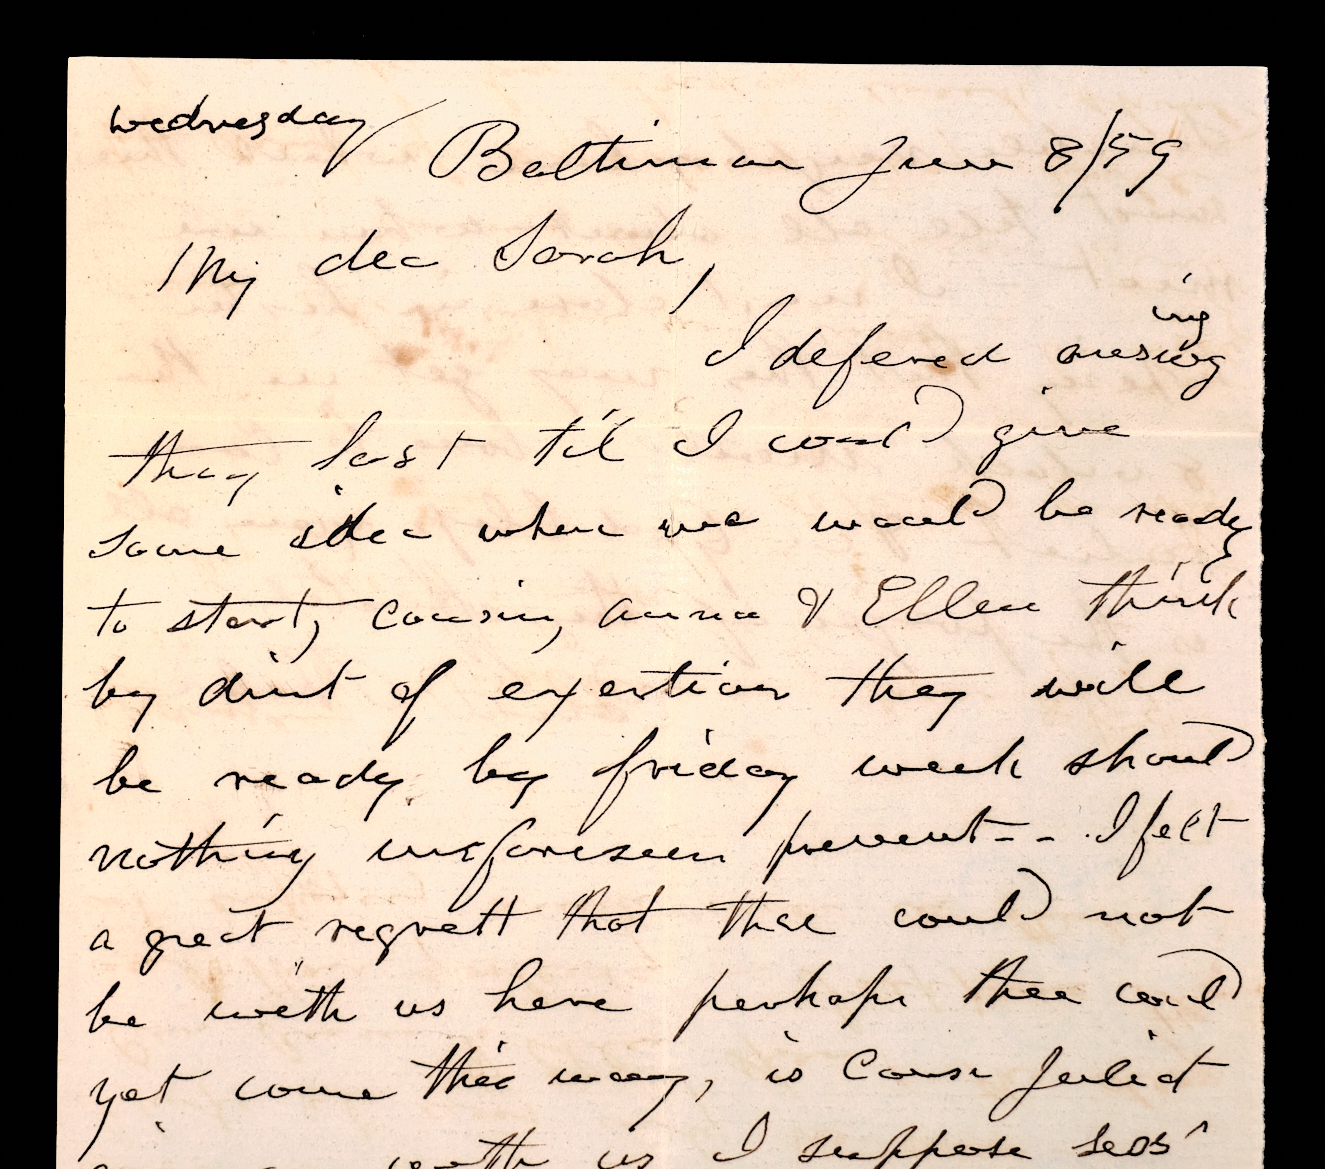 wednesday
Baltimore June 8/59
My dear Sarah,
ing
I defered
thy last til I could give
some idea when we would be ready
to start, cousin, anna & Ellen think
by dint of exertion they will
be ready by friday week should
nothing unforeseen prevent-- I felt
a great regrett that thee could not
be with us here perhaps thee could
yet come this way, is Cousn Juliet
with us I suppose